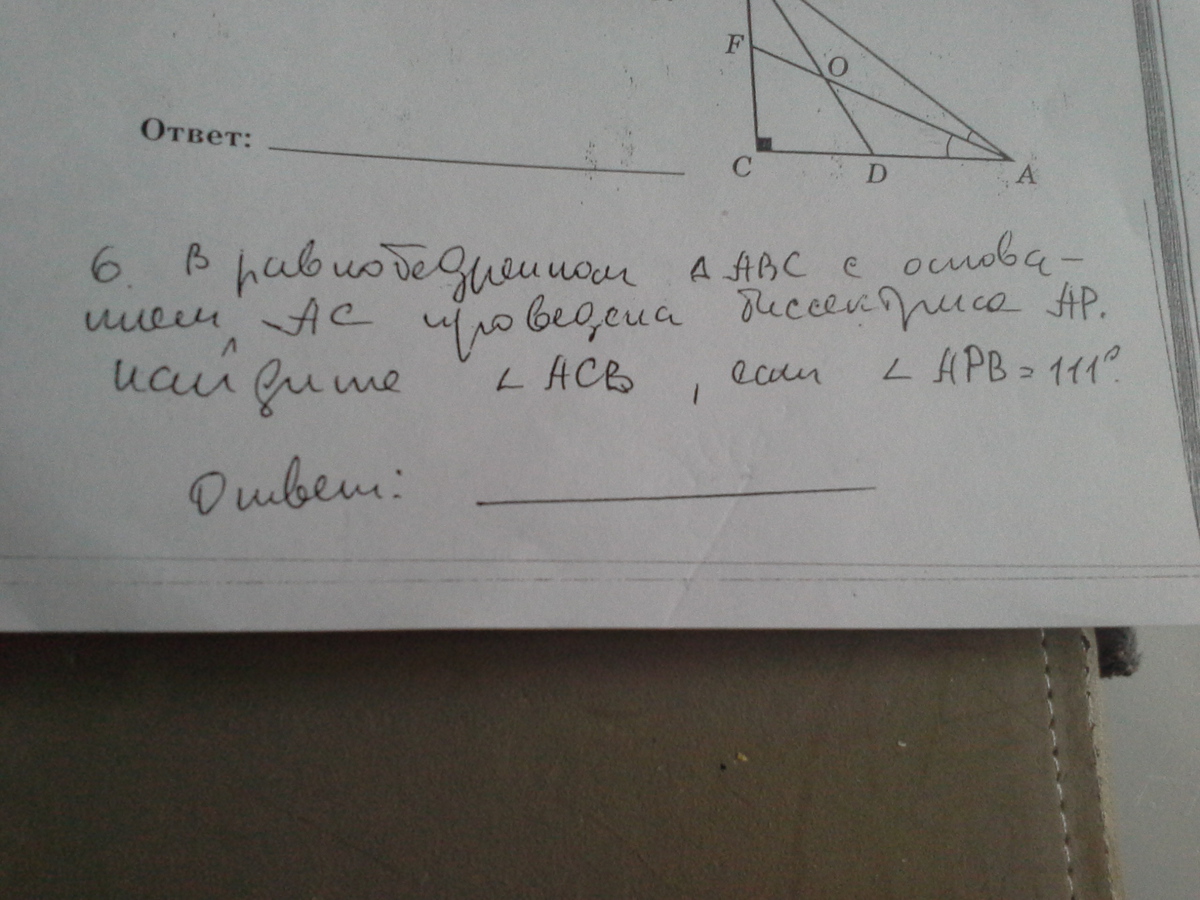 F
O
Ответ:
C
D
A
6. В равнобедренном ΔABC с основа-
нием AC проведена биссектриса AP.
найдите ∠ACB, если ∠APB = 111°.
Ответ: